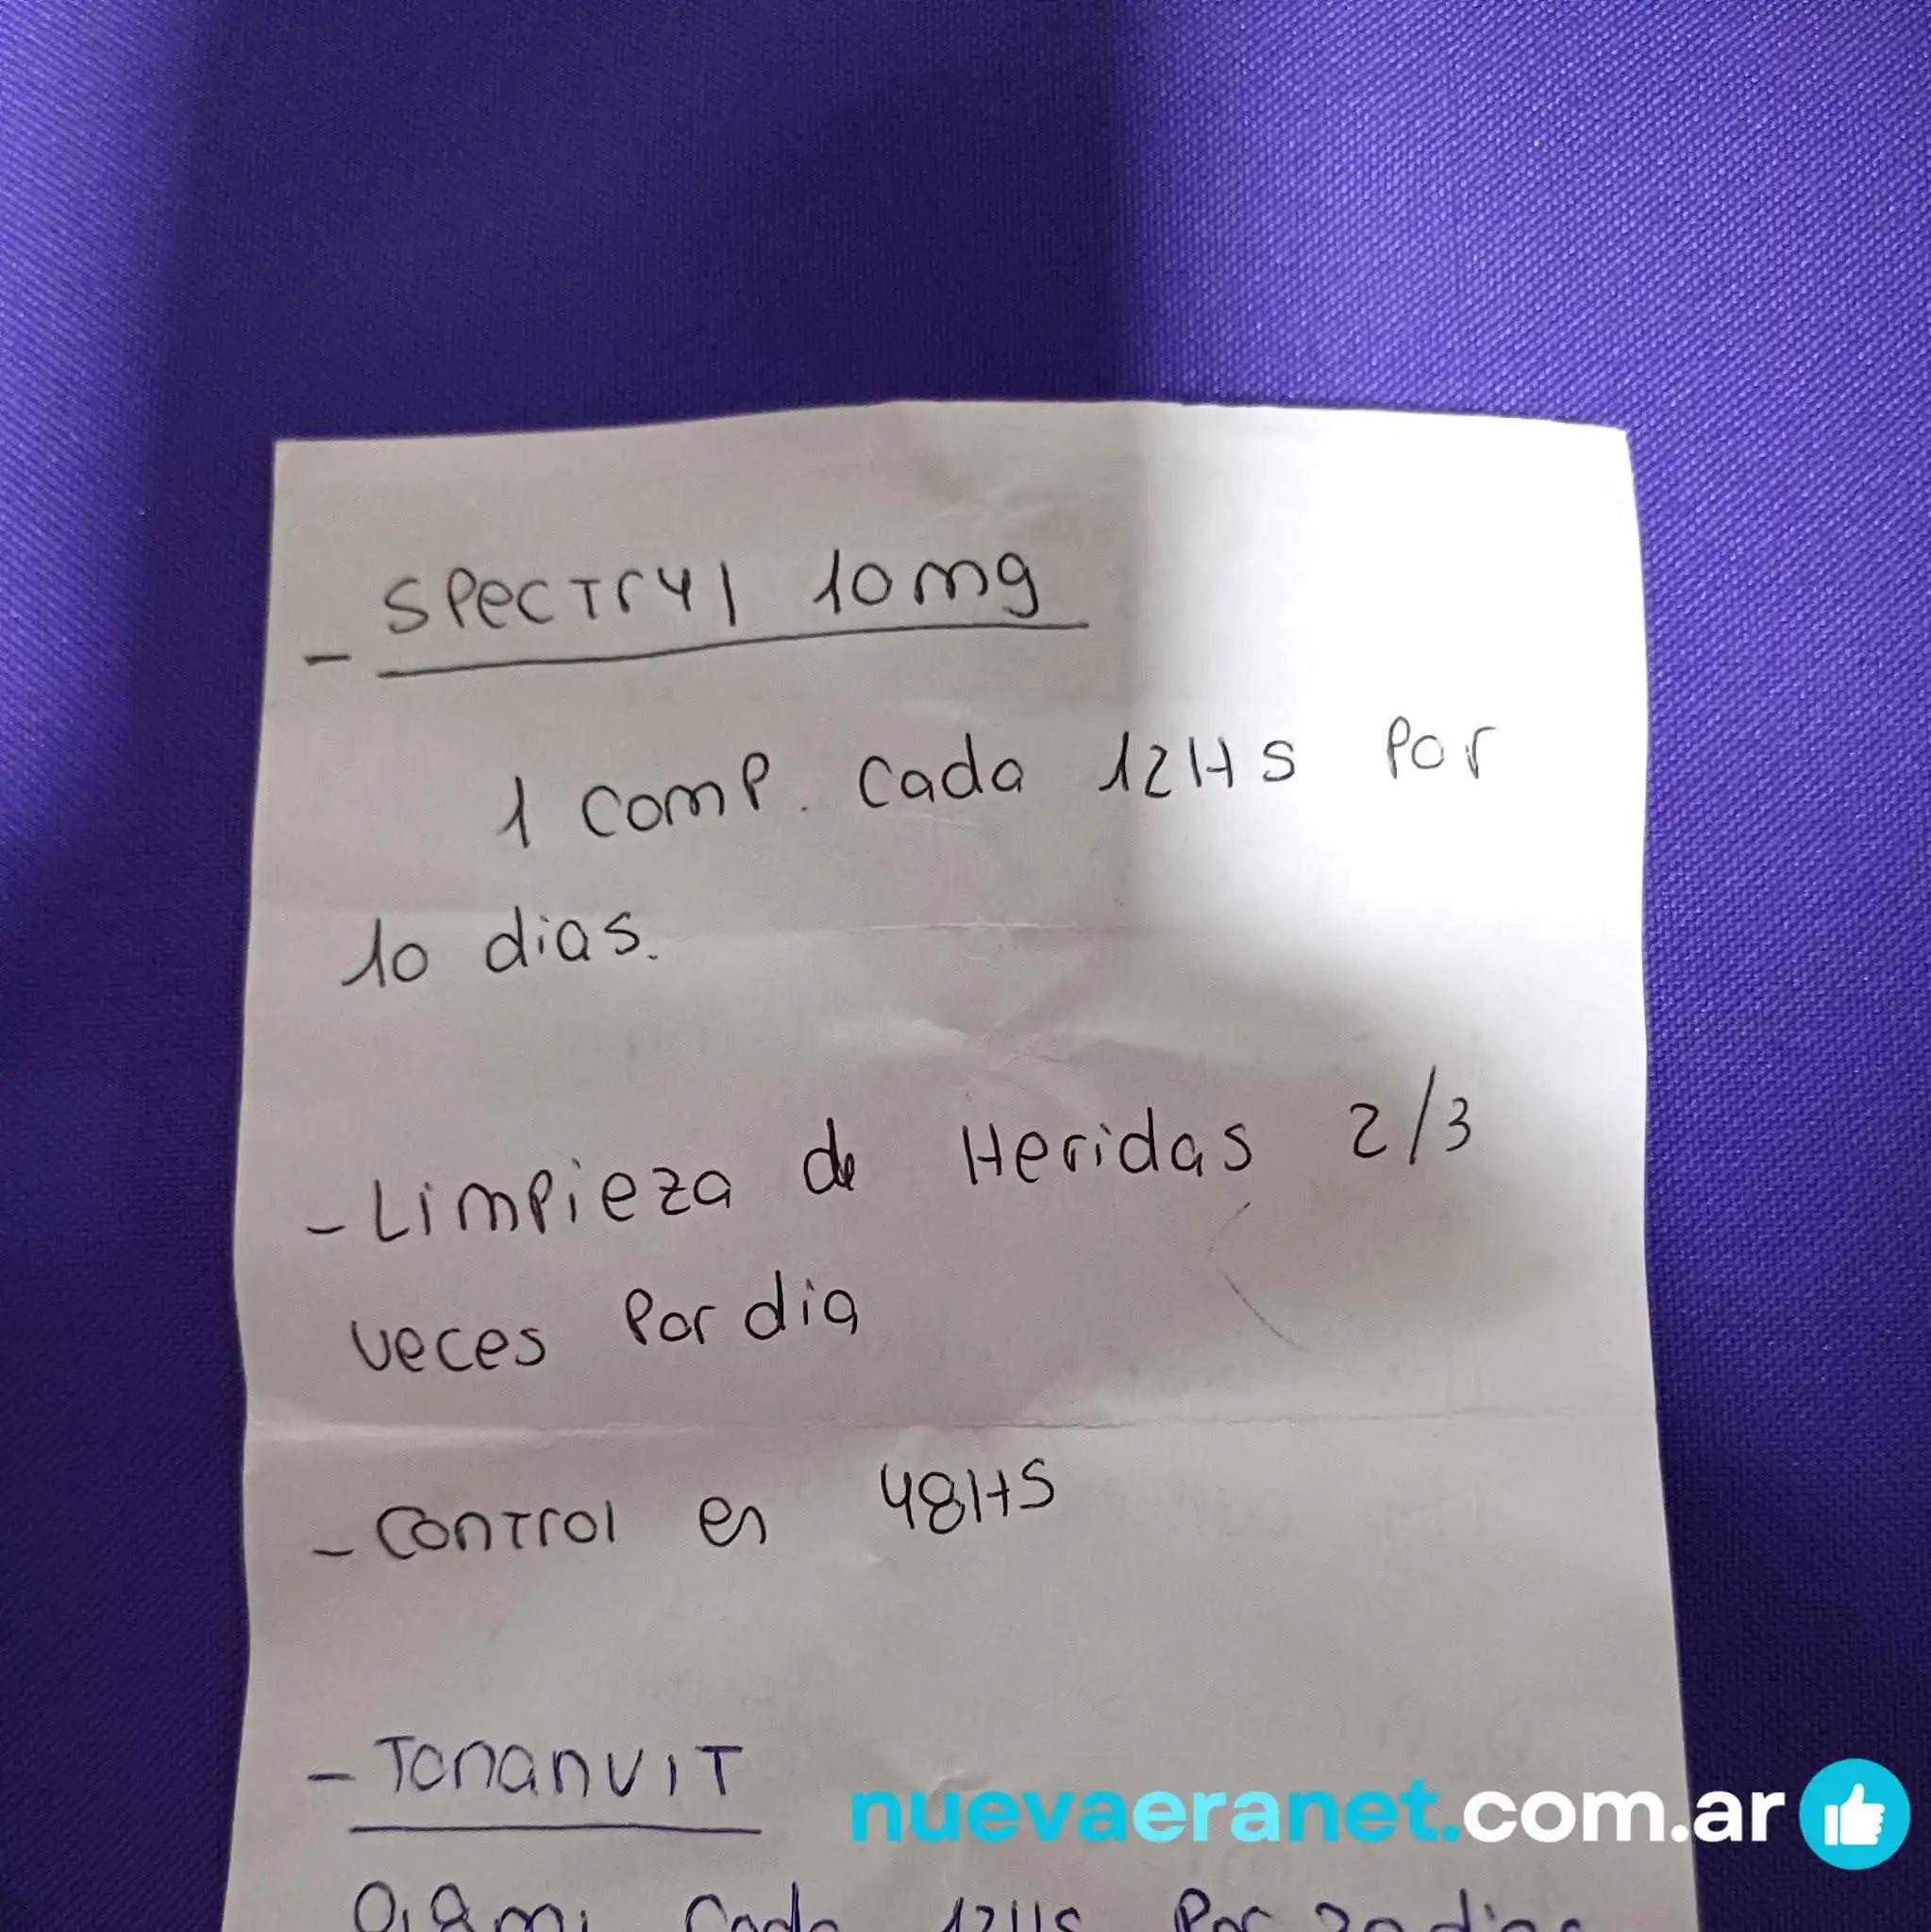 - SPECTrYl 10mg
1 comp. Cada 12HS Por
10 dias.
- Limpieza de Heridas 2/3
veces Por dia
- Control en 48HS
- TonanVIT
nuevaeranet.com.ar
Cada 12HS Por dias